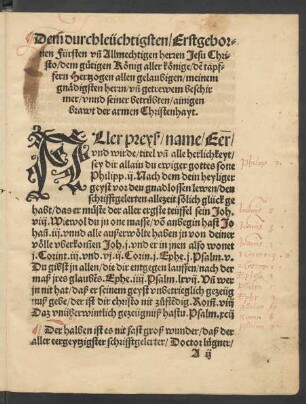 Dem durchleüchtigsten/ Erstgebor-
nen Fürsten vñ Allmechtigen herren Jesu Chri-
sto/dem gütigen König aller könige/dē tapf-
fern Hertzogen allen gelaubigen/meinem
gnädigsten herrn/vñ getrewem beschir
mer/vnnd seiner betrübten/ainigen
brawt der armen Christenhayt.
Aller preyß/name/Eer/
vnd wirde/titel vñ alle herlichkeyt/
sey dir allain du ewiger gottes sone
Philipp.ij. Nach dem dein heyliger
geyst vor den gnadlossen lewen/den
schrifftgelerten allezeit sölich glück ge
habt/das er müste der aller ergste teüffel sein Joh.
viij. Wiewol du jn one masse/võ anbegin hast Jo
han.iij. vnnd alle außerwölte haben jn von deiner
völle vberkomen Joh.j. vnd er in jnen also wonet
j.Corint.iij. vnd. vj.ij.Corin.j. Ephe.j. Psalm.v.
Du gibst jn allen/die dir entgegen lauffen/nach der
maß jres glaubts. Ephe.iiij. Psalm.lxvij. Vñ wer
jn nit hat/daß er seinem geyst vnbetrieglich gezeüg
nuß gebe/der ist dir christo nit züstēdig. Rom.viij
Daz vnüberwintlich gezeügniß hastu. Psalm.xcij
Der halben ist es nit fast groß wunder/daß der
aller eergeytzigster schrifftgelerter/Doctor lügner/
A ij
Philipp 2